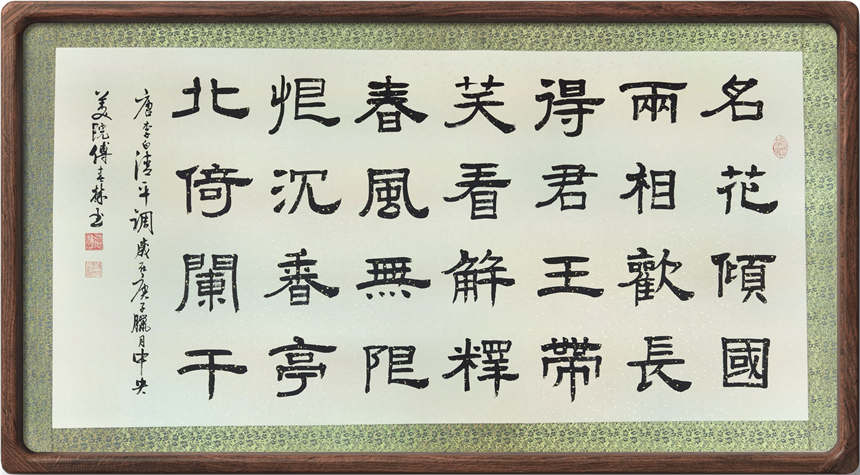 名花傾國
兩相歡長
得君王帶
笑看解釋
春風無限
恨沉香亭
北倚闌干
唐李白清平調歲在庚子臘月中央
美院傅林书